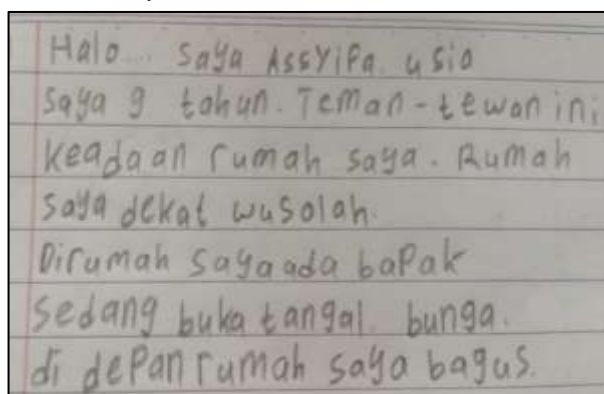 Halo... saya Assyifa. usia
saya 9 tahun. Teman-tewan ini
keadaan rumah saya. Rumah
saya dekat wusolah.
Dirumah saya ada bapak
sedang buka tangal. bunga.
di depan rumah saya bagus.